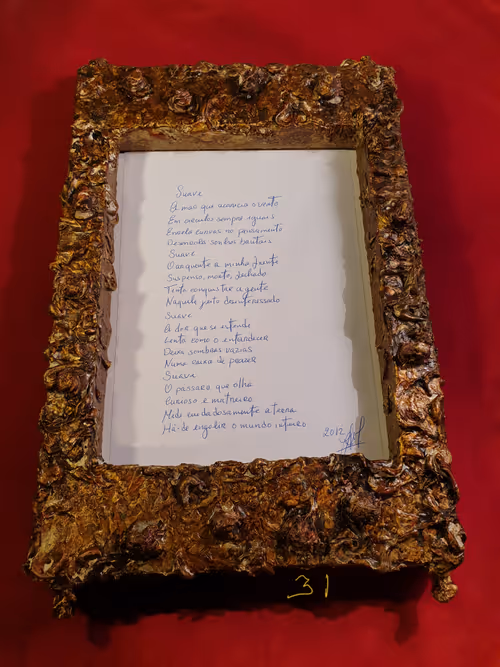 Suave
A mão que acaricia o vento
Em círculos sempre iguais
Enrola curvas no pensamento
Desenha sonhos banais
Suave
O à minha frente
Suspenso, morto, deitado
Tenta conquistar a gente
Naquele jeito desinteressado
Suave
A dor que se estende
Lenta como o entardecer
Deixa sombras vazias
Numa caixa de prazer
Suave
O pássaro que olha
Curioso e matreiro
Mede cuidadosamente a terra
Há-de engolir o mundo inteiro
2012
31